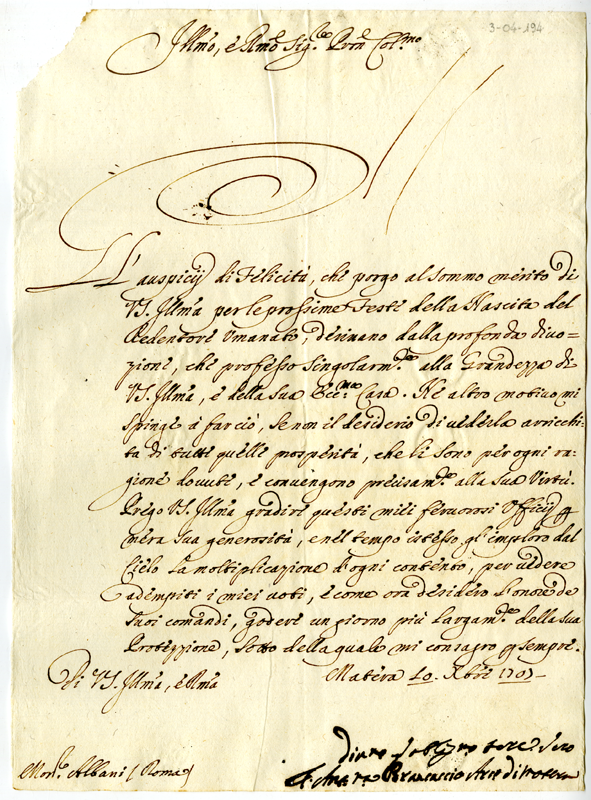 3-04-194
Jllmo, è Rmo Sig.re Pron Col.mo
L'auspicij di Felicità, che porgo al sommo merito di
VS. Jllma per le prossime Feste della Nascita del
Redentore Vmanato, derivano dalla profonda divo=
zione, che professo singolarm.te alla Grandezza di
VS. Jllma, e della sua Ecc.ma Casa. Ne altro motivo mi
spinge à far ciò, se non il desiderio di vederla arricchi=
ta di tutte quelle prosperità, che li sono per ogni ra=
gione dovute, e convengono precisam.te alla sua Virtù.
Prego VS. Jllma gradire questi miei fervorosi Officij p
mera sua generosità, e nel tempo istesso gl'imploro dal
Cielo la moltiplicazione d'ogni contento, per vedere
adempiti i miei voti, è come ora desidero l'onore de
suoi comandi, godere un giorno più largam.te della sua
Protezzione, sotto della quale mi consagro p sempre.
Di VS. Jllma, è Rma
Matera 10. Xbre 1707
Mons.r Albani (Roma)